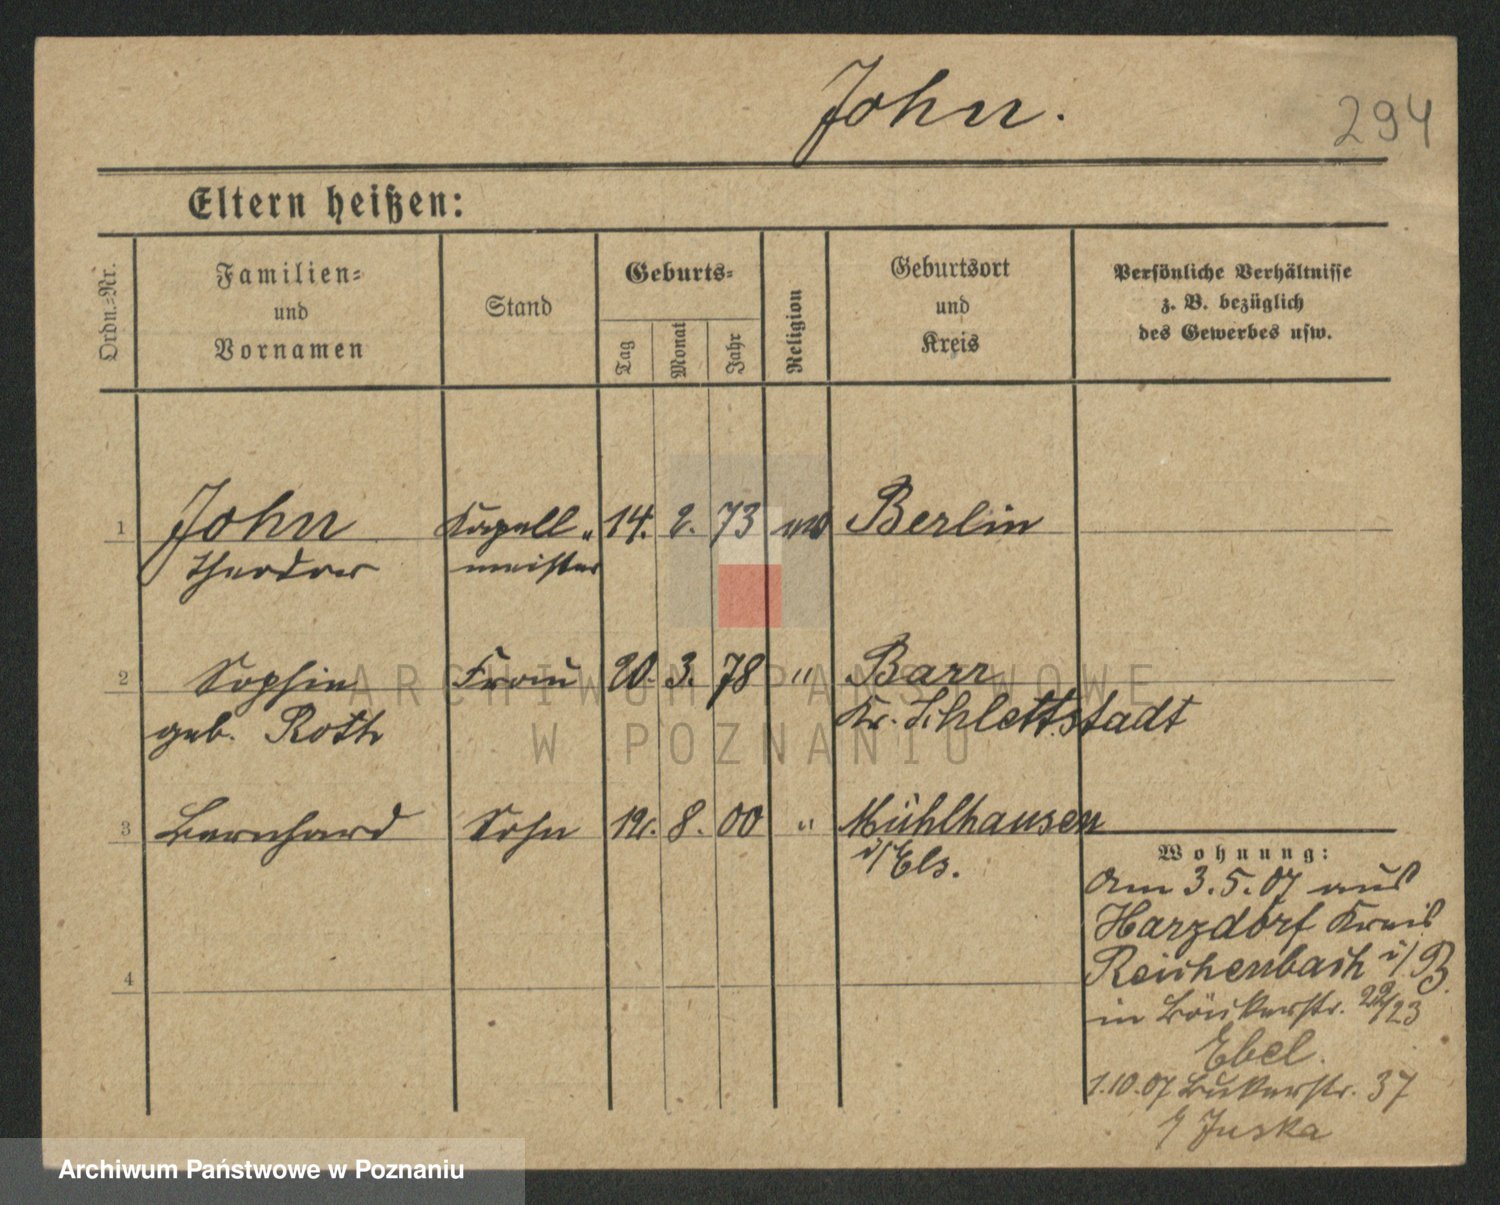 John.
294
Eltern heißen:
Ordn.-Nr.
Familien-
und
Vornamen
Stand
Geburts-
Tag
Monat
Jahr
Religion
Geburtsort
und
Kreis
Persönliche Verhältnisse
z. B. bezüglich
des Gewerbes usw.
1 John Kapell- 14. 2. 73 Berlin
Theodor meister
2 Sophie Frau 20. 3. 78 " Barr
geb. Roth Kr. Schlettstadt
3 Bernhard Sohn 8. 00 " Mühlhausen
i/Els.
4
Wohnung:
Am 3.5.07 aus
Harzdorf Kreis
Reichenbach i/B.
in Bäckerstr. 22/23
Ebel.
1.10.07 Bukerstr. 37
Juska
ARCHIWUM PAŃSTWOWE
W POZNANIU
Archiwum Państwowe w Poznaniu